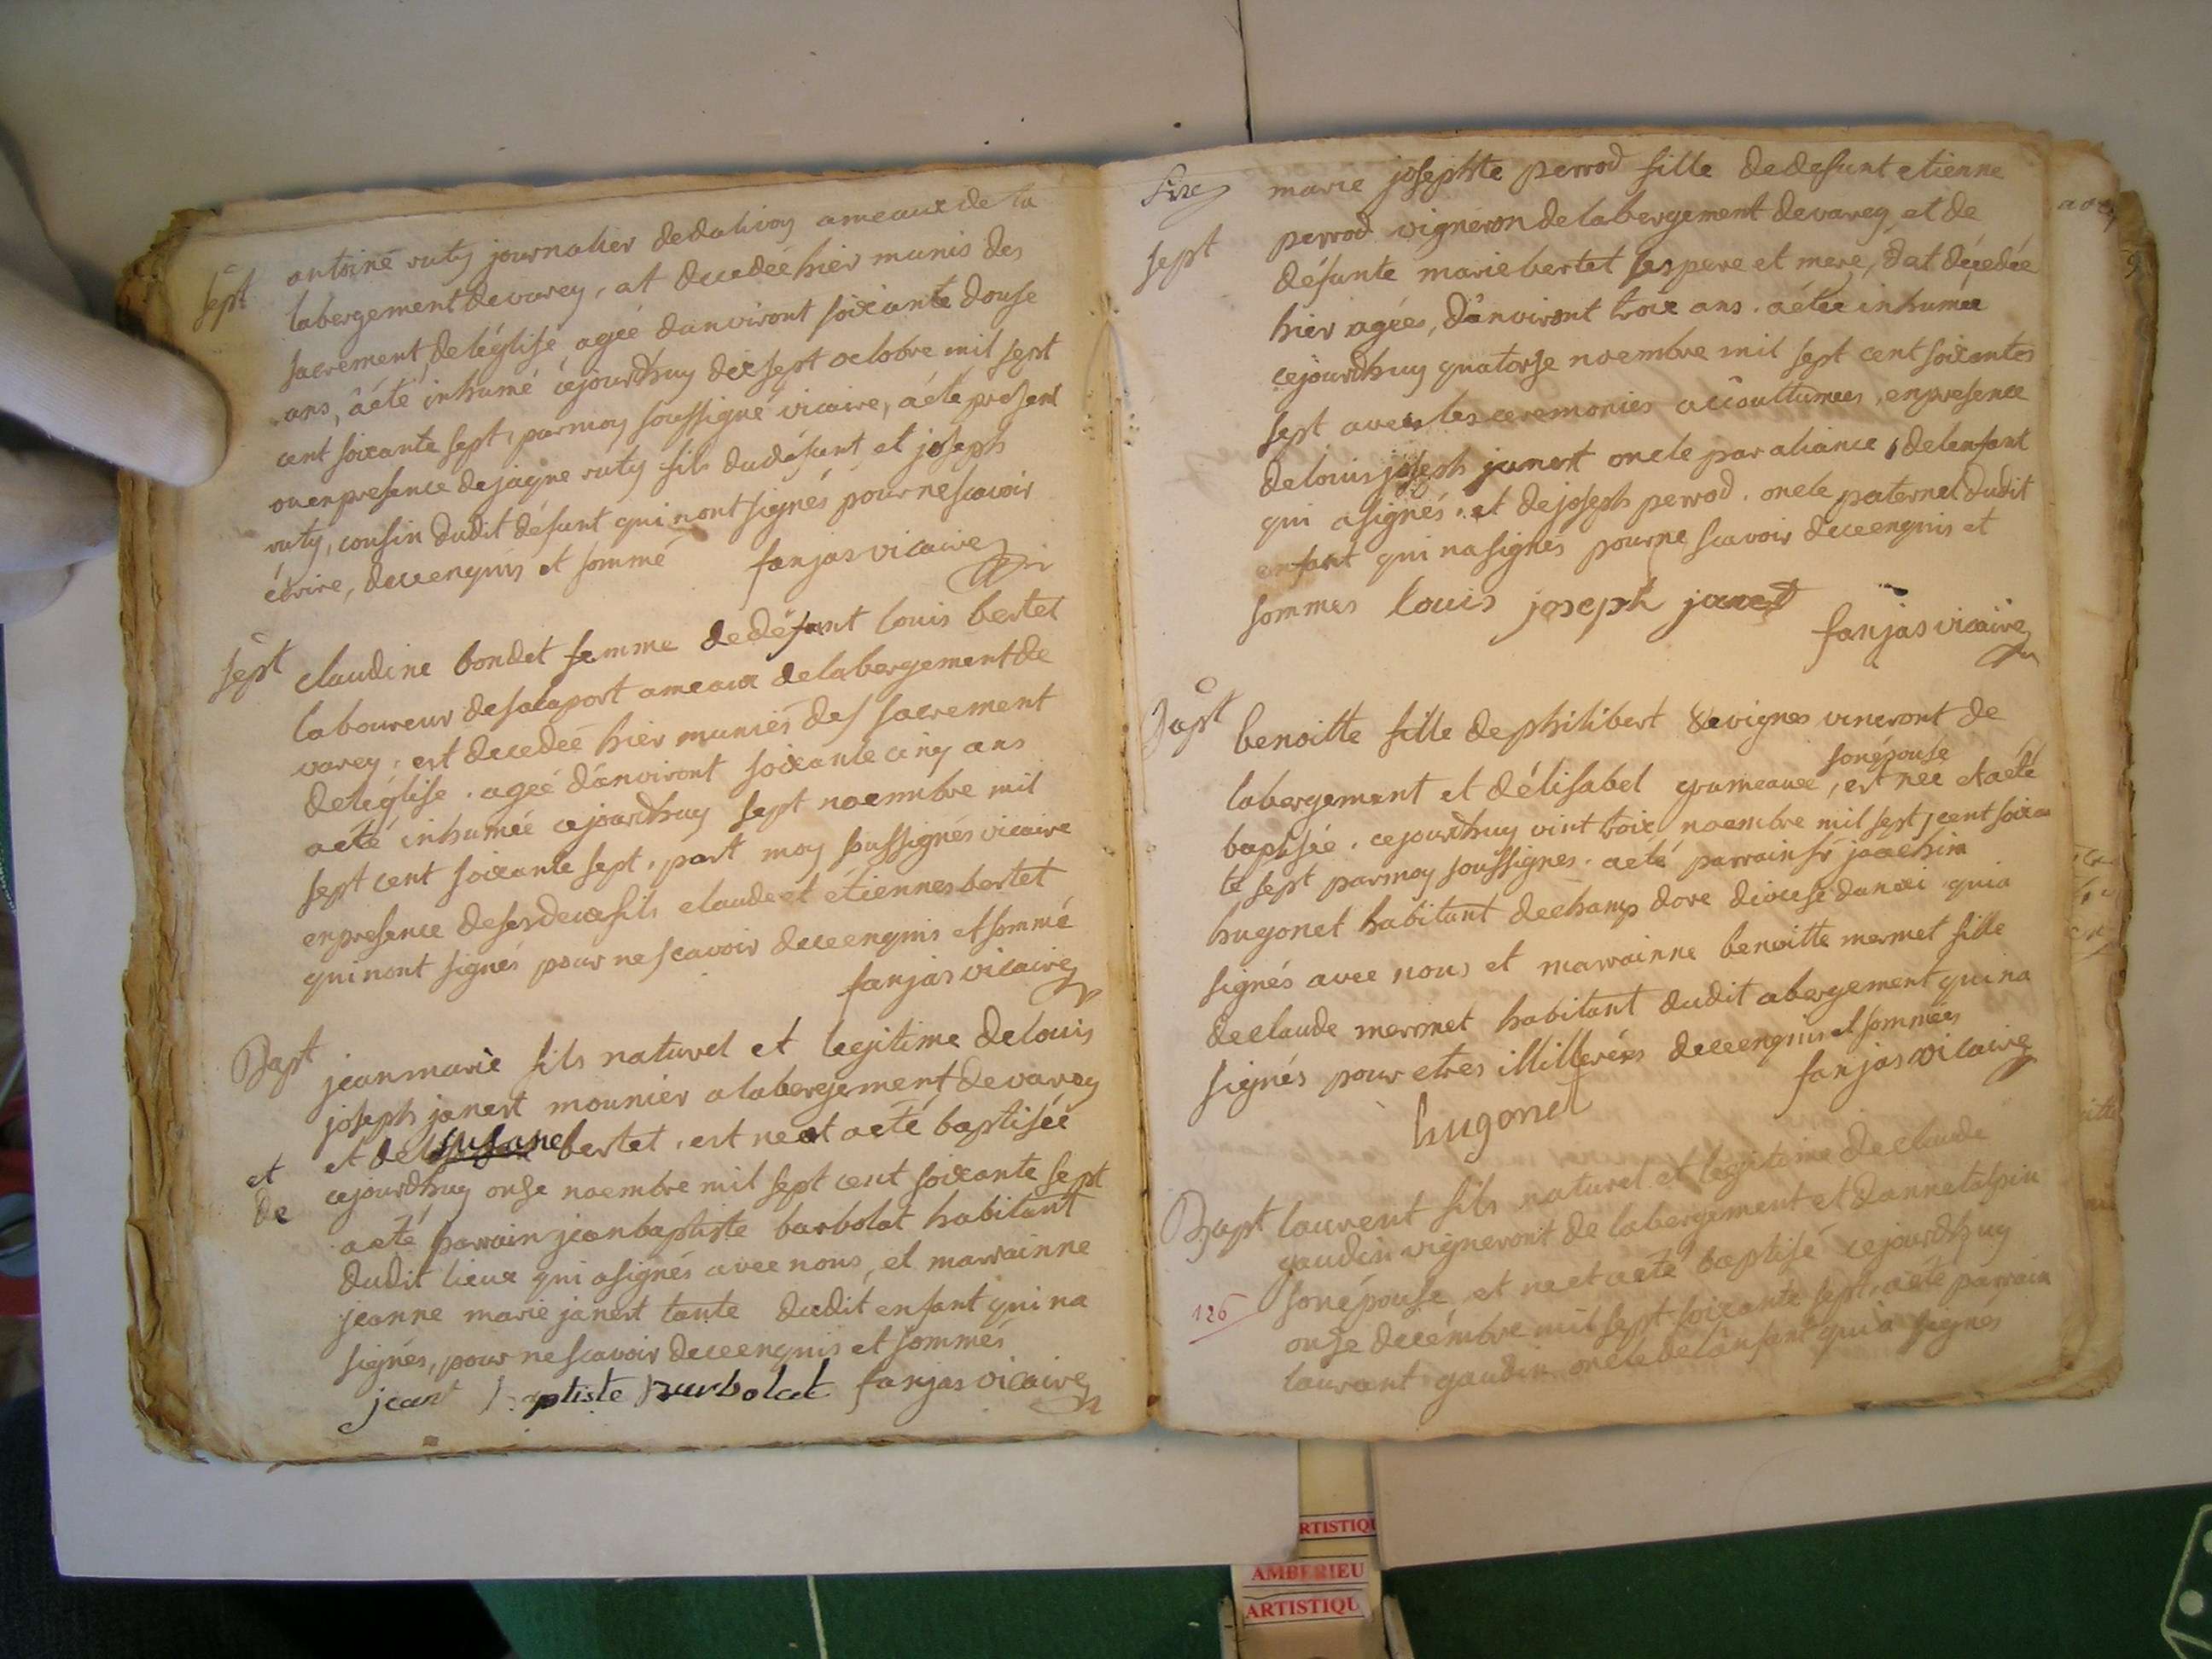 sept
antoine ruty journalier dedalivoy ameaux de la
labergement de varey, at decedée hier munis des
sacrement, deléglise, ageé danviront soixante douse
ans, àété inhumé cejourdhuy dix sept octobre mil sept
cent soixante sept, parmoy soussigné vicaire, àété present
ou enpresence de jaque ruty fils dudéfunt, et joseph
ruty, cousin dudit défunt qui nont signés pour ne scavoir
écrire, deceenquis et sommé
fanjas vicaire
sept
claudine bondet femme de défunt louis bertet
laboureur desalaport ameaux delabergement de
varey, est decedeé hier muniés des sacrement
deléglise, ageé dánviront soixante cinq ans
aeté inhumeé cejourdhuy sept noembre mil
sept cent soixante sept, part moy soussignés vicaire
enpresence desesdeux fils claude et étiennes bertet
qui nont signés pour ne scavoir deceenquis et sommé
fanjas vicaire
Bapt
jean marie fils naturel et legitime de louis
joseph janert mounier a labergement de varey
et de susane bertet, est ne et aeté baptiséé
et
de
cejourdhuy onse noembre mil sept cent soixante sept
aeté parrain jean baptiste barbolat habitant
dudit lieux qui asignés avec nous, et marrainne
jeanne marie janert tante dudit enfant qui na
signés, pour ne scavoir deceenquis et sommés
jean baptiste barbolat fanjas vicaire
sept
marie josephte perrod fille dedefunt etienne
perrod vigneron delabergement devarey et de
défunte marie bertet ses pere et mere, dat décedée
hier ageés, dánviront troix ans, aétée inhumée
cejourdhuy quatorse noembre mil sept cent soixantes
sept avec les ceremonies accoultumees, enpresence
delouis joseph janert oncle par aliance, delenfant
qui asignés, et de joseph perrod, oncle paternel dudit
enfant qui nasignés pourne scavoir deceenquis et
sommes louis joseph janert
fanjas vicaire
Bapt
benoitte fille de philibert devignes vineront de
sonépouse
labergement et délisabet grumeauee, est neé et aeté
baptisée, cejourdhuy vint troix noembre mil sept, cent soixan
te sept parmoy soussignes, aeté parrain sr joachim
hugonet habitant dechamp dore diocese danoi quia
signés avec nous et marrainne benoitte mermet fille
de claude mermet habitant dudit abergement qui na
signés pour etres illitterées deceenquis et sommées
hugonet
fanjas vicaire
Bapt
laurent fils naturel et legitime de claude
gaudin vigneront de labergement et dannetalpin
sonépouse, et ne et aété baptisé cejourdhuy
126
onse decémbre mil sept soixante sept, aété parrain
laurant gaudin oncle delanfant qui a signés
RTISTIQU
AMBERIEU
ARTISTIQU